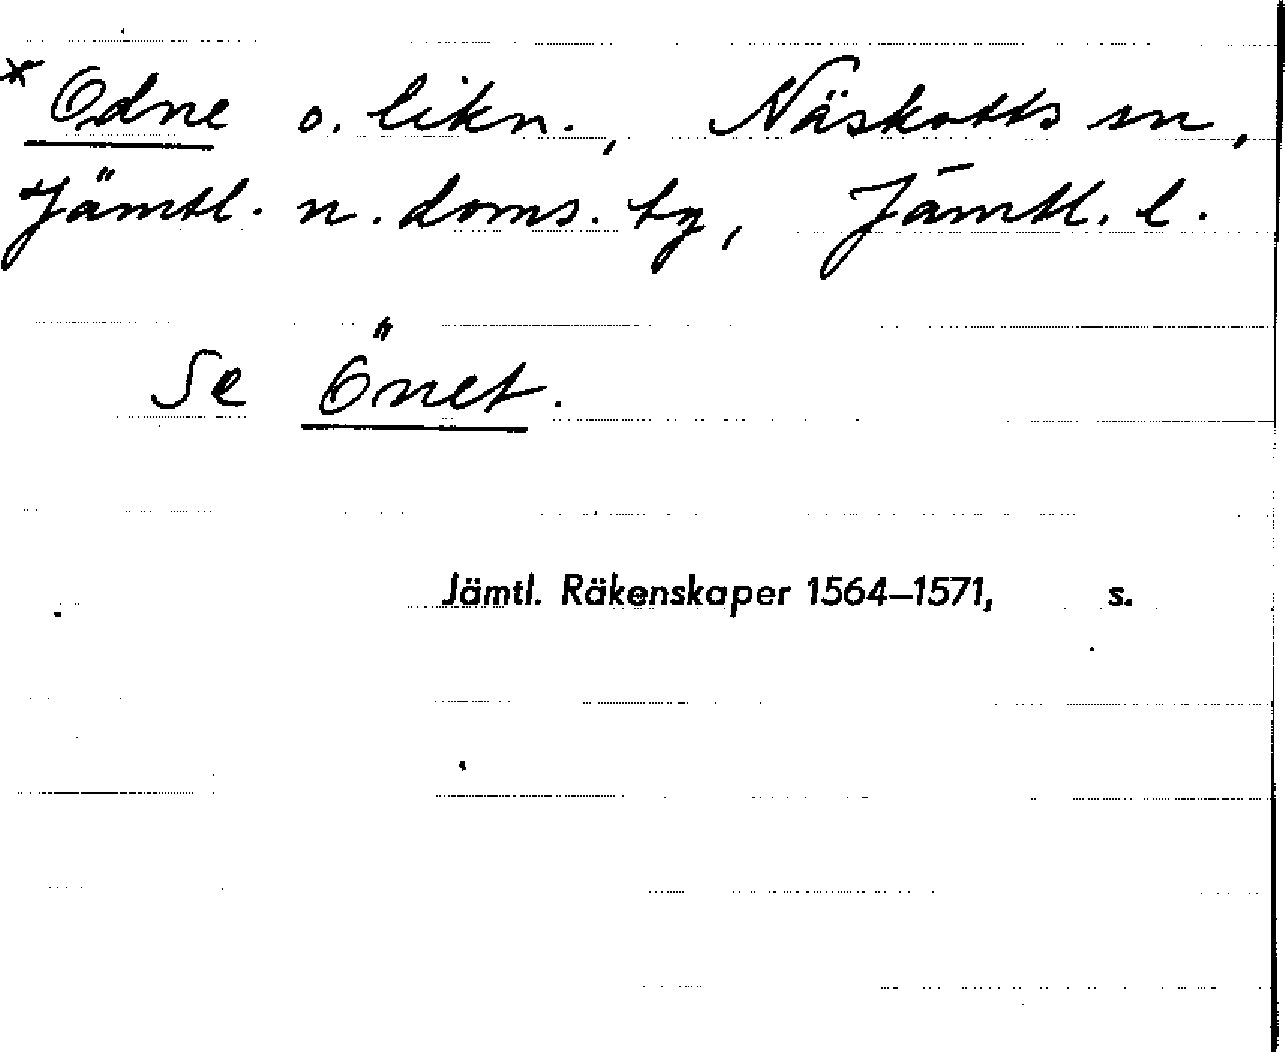 * Odne o. likn., Näskotts sn,
Jämtl. n. doms. tg, Jämtl. l.
Se Önet.
Jämtl. Räkenskaper 1564–1571, s.